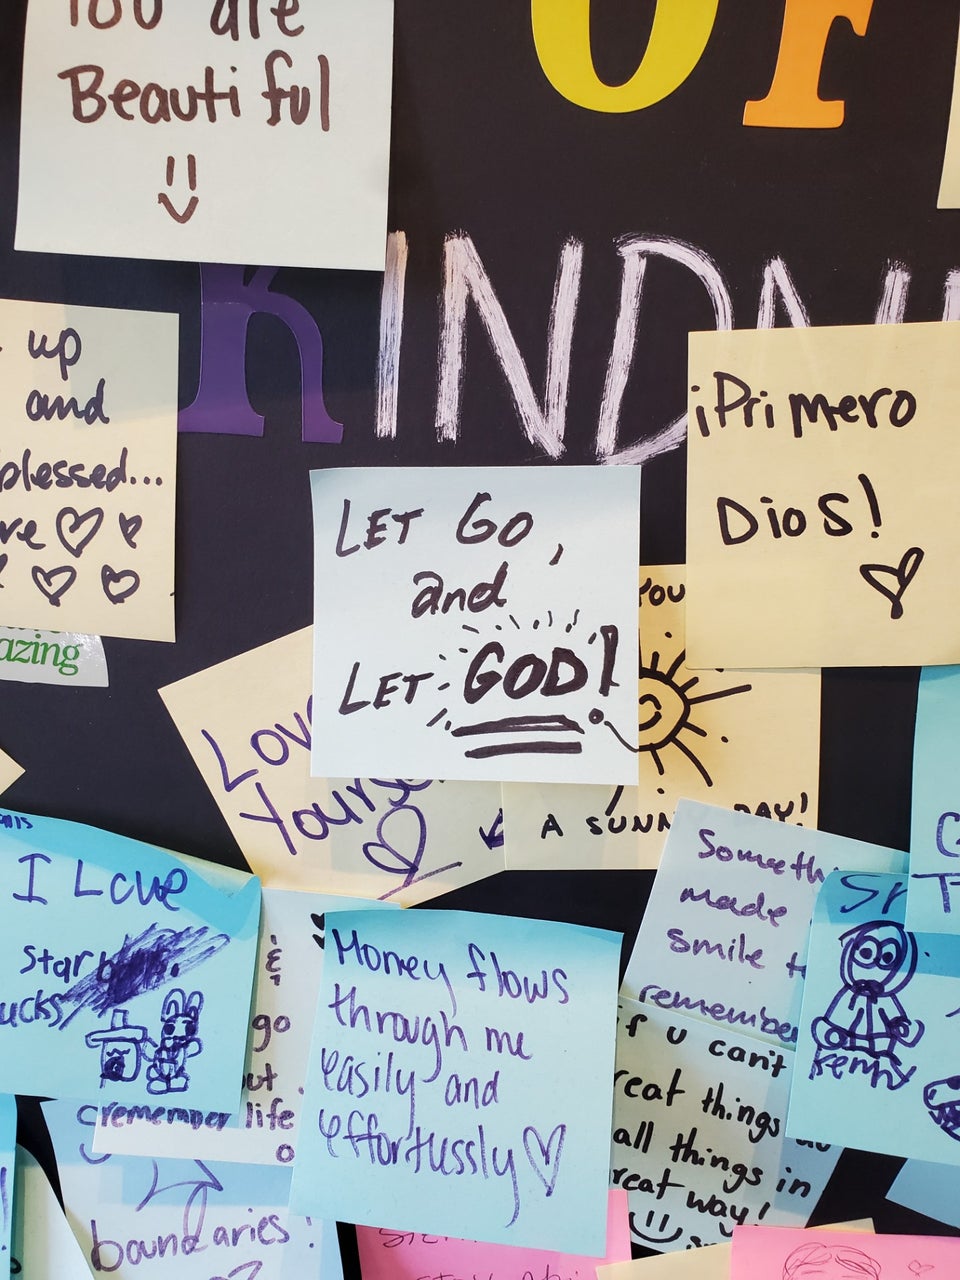 You are
Beautiful
OF
KINDN
up
and
blessed...
¡Primero
Dios!
LET GO,
and
LET GOD!
azing
YOU
A SUNNY DAY!
Love
Yourse
I Love
Star
ucks
go
out
remember life
boundaries!
Money flows
through me
easily and
effortlussly
Someth
made
smile t
remember
if u can't
reat things
all things in
reat way!
Kenny